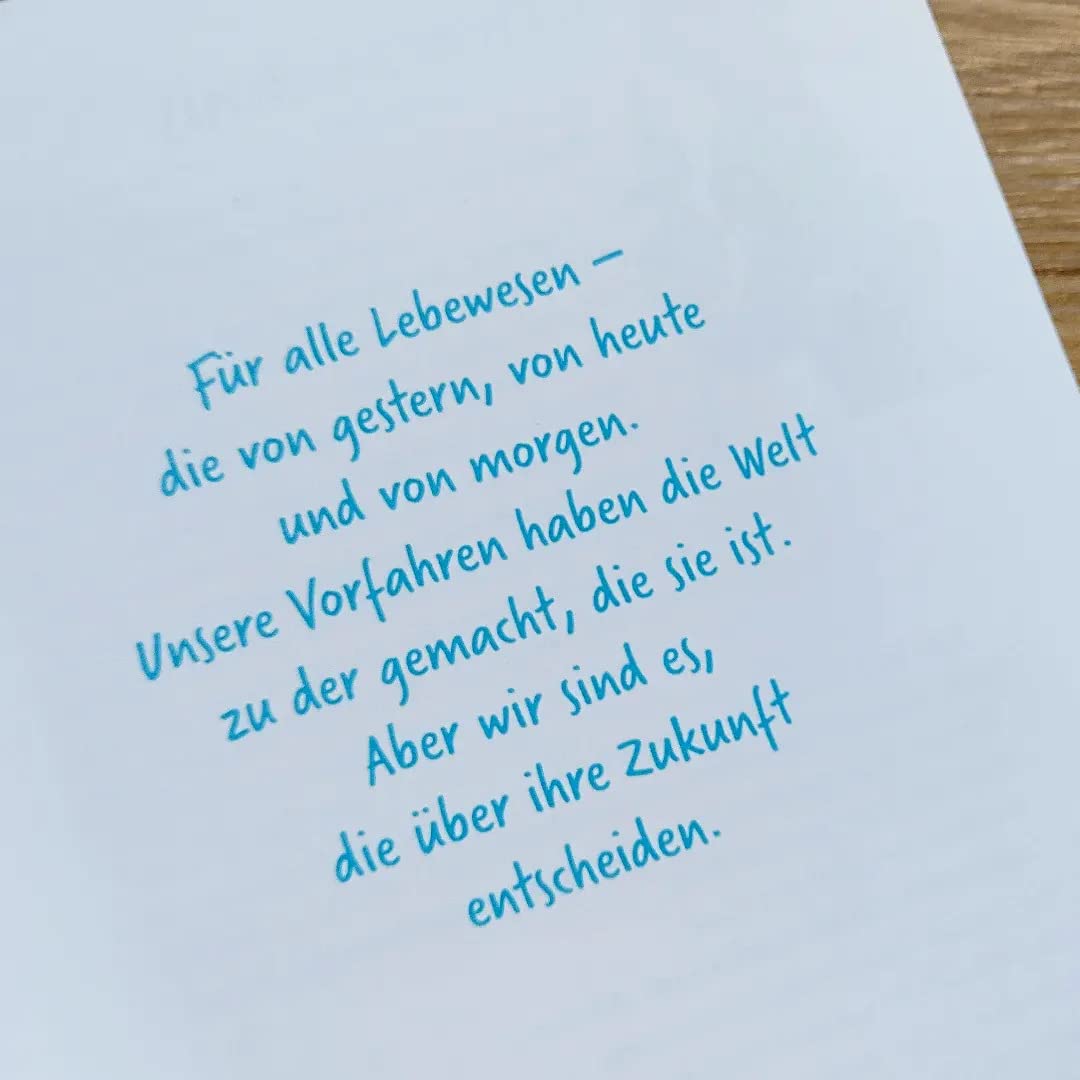 Für alle Lebewesen –
die von gestern, von heute
und von morgen.
Unsere Vorfahren haben die Welt
zu der gemacht, die sie ist.
Aber wir sind es,
die über ihre Zukunft
entscheiden.